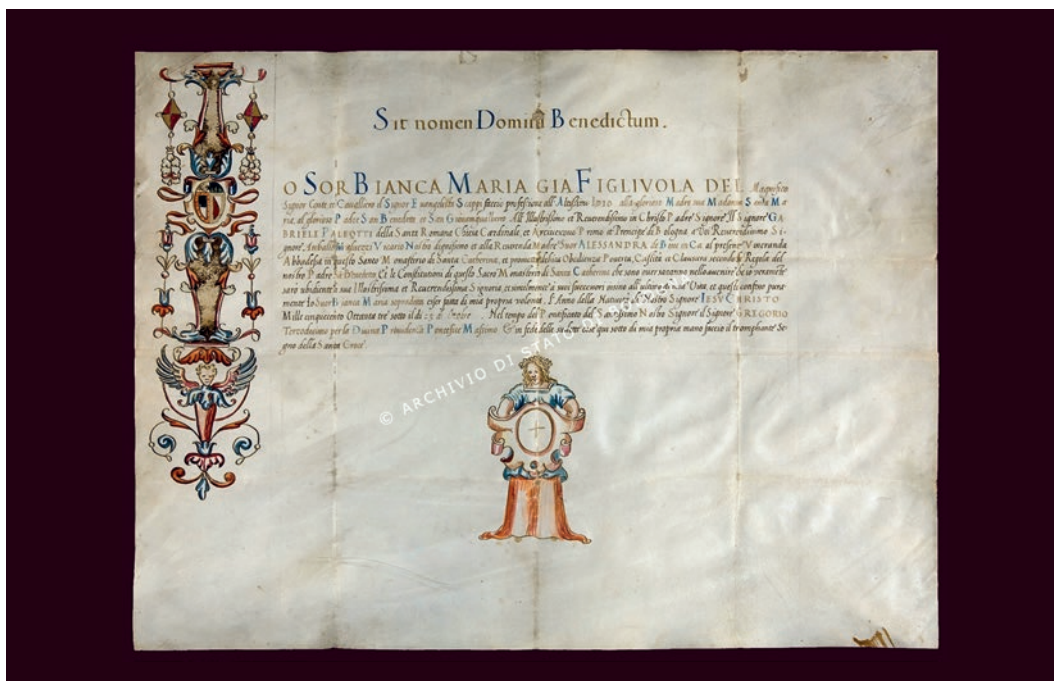 Sit nomen Domini Benedictum.
O SOR BIANCA MARIA GIA FIGLIVOLA DEL Magnifico
Signor Conte et Cavalliero il Signor Evangelista Scappi faccio professione all'Altissimo IDIO alla gloriosa Madre sua Madonna Santa Ma
ria, al glorioso Padre San Benedetto et San Giovanqualberto All' Illustrissimo et Reverendissimo in Christo Padre Signore Il Signor GA
BRIELE PALEOTTI della Santa Romana Chiesa Cardinale, et Arcivescovo Primo et Principe di Bologna a Voi Reverendissimo Si
gnore Vicario Nostro dignissimo et alla Reverenda Madre Suor ALESSANDRA de al presente Veneranda
Abbadessa in questo Santo Monasterio di Santa Catherina, et prometto Obidianza Poverta, Castità et Clausura secondo la Regola del
nostro Padre San Benedetto Et le Constitutioni di questo Sacro Monastero di Santa Catherina che sono over saranno nell'avenire
sarò ubidiente a sua Illustrissima et Reverendissima Signoria et similmente à suoi successori insino all'ultimo di mia Vita, et questi confino pura
mente Io Suor Bianca Maria sopradetta esser fatta di mia propria volontà. L'Anno della Natività di Nostro Signore IESV CHRISTO
Mille cinquecento Ottanta tre sotto il di 23 di . Nel tempo del Pontificato del Santissimo Nostro Signore il Signor GREGORIO
Terzodecimo per la Divina Providenza Pontefice Massimo. Et in fede delle sudette cose qui sotto di mia propria mano faccio il triomphante Se
gno della Santa Croce.
© ARCHIVIO DI STATO DI